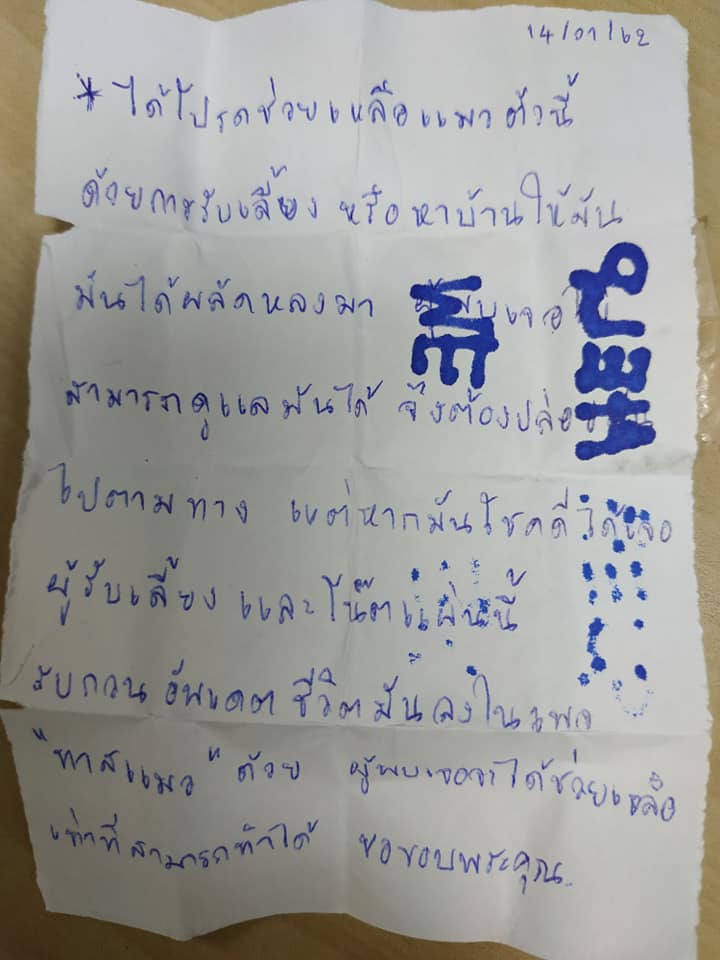 14/01/62
* ได้โปรดช่วยเหลือแมวตัวนี้
ด้วยการรับเลี้ยง หรือหาบ้านให้มัน
มันได้ผลัดหลงมา ผู้พบเจอ
สามารถดูแลมันได้ จึงต้องปล่อย
ไปตามทาง แต่หากมันโชคดีได้เจอ
ผู้รับเลี้ยง และโน๊ตแผ่นนี้
รบกวน อัพเดตชีวิตมันลงในเพจ
"ทาสแมว" ด้วย ผู้พบเจอจะได้ช่วยเหลือ
เท่าที่สามารถทำได้ ขอขอบพระคุณ..
ME